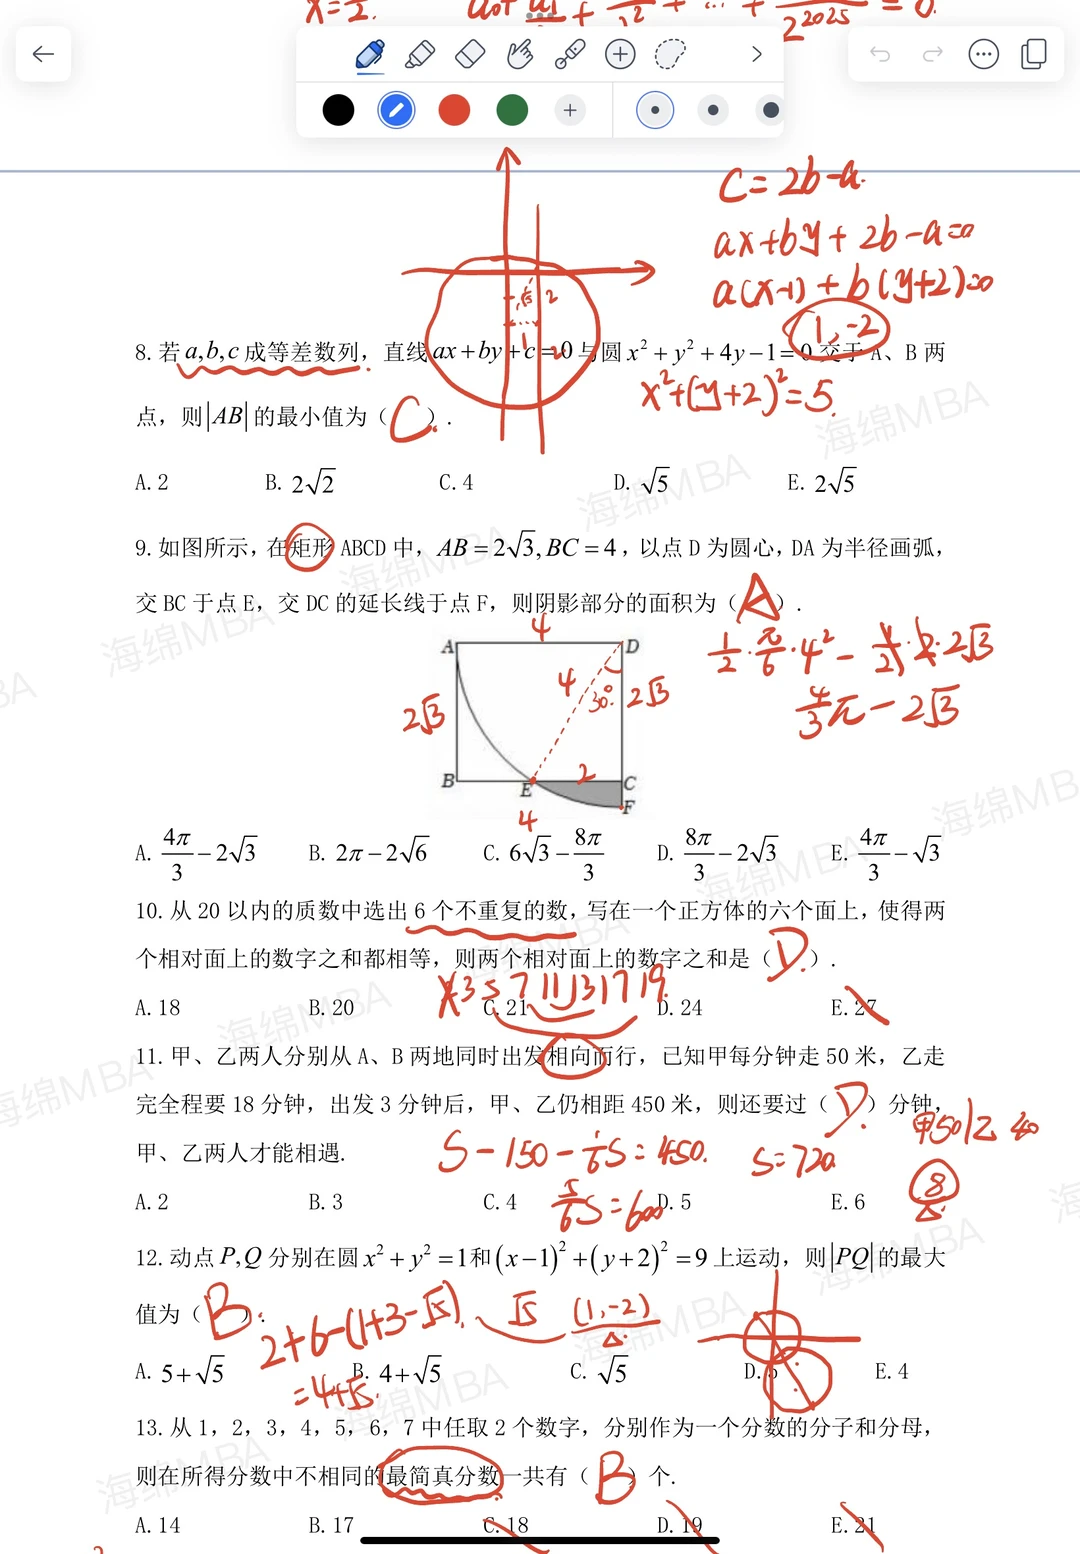 x=1/2. a₀+a₁/2+1/2²+…+ /2²⁰²⁵=0.
C=2b-a.
ax+by+2b-a=0
a(x-1)+b(y+2)=0
(1,-2)
8. 若 a,b,c 成等差数列，直线 ax+by+c=0 与圆 x²+y²+4y-1=0 交于 A、B 两
x²+(y+2)²=5.
点，则|AB|的最小值为（ C. ）.
A. 2 B. 2√2 C. 4 D. √5 E. 2√5
9. 如图所示，在矩形 ABCD 中，AB=2√3, BC=4，以点 D 为圆心，DA 为半径画弧，
交 BC 于点 E，交 DC 的延长线于点 F，则阴影部分的面积为（ A ）.
4
A D
1/2·π/6·4²-1/2·2·2√3
4 30° 2√3
2√3
4/3π-2√3
2
B E C
F
4
A. 4π/3-2√3 B. 2π-2√6 C. 6√3-8π/3 D. 8π/3-2√3 E. 4π/3-√3
10. 从 20 以内的质数中选出 6 个不重复的数，写在一个正方体的六个面上，使得两
个相对面上的数字之和都相等，则两个相对面上的数字之和是（ D. ）.
2 3 5 7 11 13 17 19
A. 18 B. 20 C. 21 D. 24 E. 27
11. 甲、乙两人分别从 A、B 两地同时出发相向而行，已知甲每分钟走 50 米，乙走
完全程要 18 分钟，出发 3 分钟后，甲、乙仍相距 450 米，则还要过（ D. ）分钟，
甲50/乙40
甲、乙两人才能相遇.
S-150-1/6S=450. S=720
8
5/6S=600
A. 2 B. 3 C. 4 D. 5 E. 6
12. 动点 P,Q 分别在圆 x²+y²=1和(x-1)²+(y+2)²=9 上运动，则|PQ|的最大
值为（ B ）.
2+6-(1+3-√5). √5 (1,-2)
=4+√5.
A. 5+√5 B. 4+√5 C. √5 D. 5 E. 4
13. 从 1，2，3，4，5，6，7 中任取 2 个数字，分别作为一个分数的分子和分母，
则在所得分数中不相同的最简真分数一共有（ B ）个.
A. 14 B. 17 C. 18 D. 19 E. 21
海绵MBA